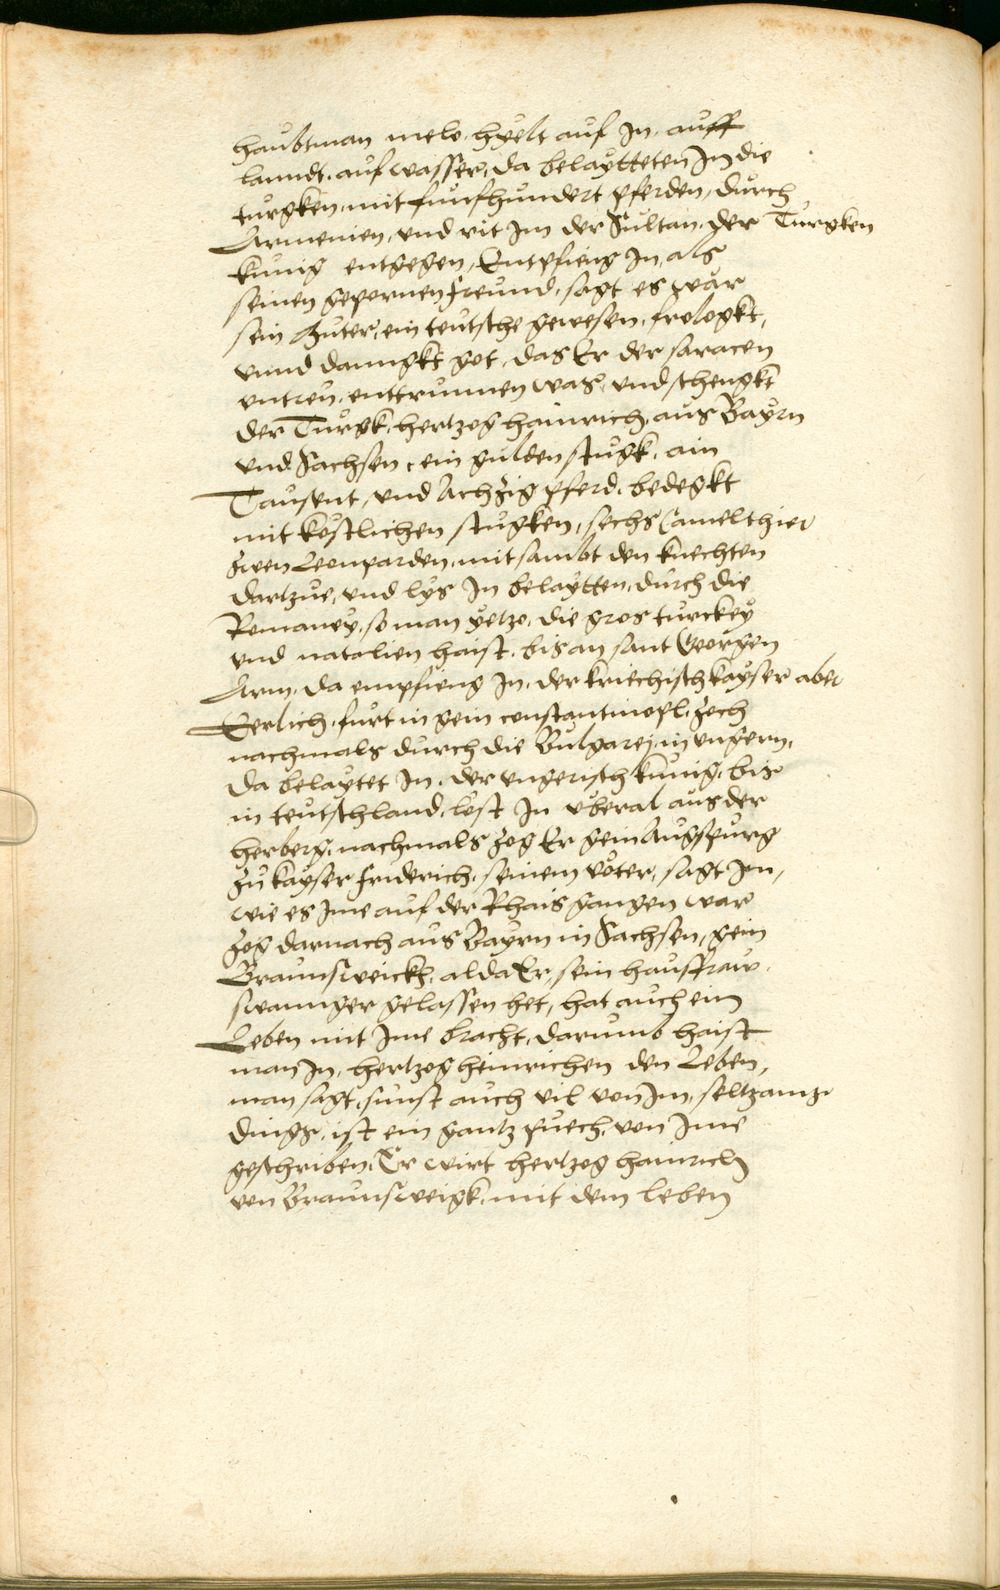 haubtman melo, hyelt auf In, auff
lanndt, auf wasser, da belaytteten In die
turgken, mit funfhundert pferden, durch
Armenien, vnd rit Im der Sultan, der Turgken
kunig entgegen, Entpfieng In, als
seinen gepornen freund, sagt es war
sein muter, ein teutsche gewesen, frologkt,
vnnd danngkt got, das Er der saracen
vntreu, enttrunnen was, vnd schengkt
der Turgk, hertzog hainrich, aus Bayrn
vnd Sachsen, ein gulden stugk, ain
Tausent, vnd Achzig pferd, bedegkt
mit kostlichen stugken, sechs Camelthier
zwen Leonparden, mitsambt den knechten
dartzue, vnd lys In belaytten, durch die
Romaney, so man yetzo, die gros turckey
vnd natolien haist, bis an sant Georgen
Arm, da empfieng In, der kriechisch kayser aber
Eerlich, furt in gein constantinopl, zoch
nachmals durch die Bulgarej, in vngern,
da belaytet In, der vngerisch kunig, bis
in teutschland, lost In vberal aus der
herberg, nachmals zog Er gein Augspurg
zu kayser friderich, seinem voter, sagt Im,
wie es Ime auf der Rhais gangen war
zog darnach aus Bayrn in Sachsen, gein
Braunsweickh, alda Er, sein hausfraw
swannger gelassen het, hat auch ein
Leben mit Ime bracht, darumb haist
man In, hertzog heinrichen den Leben,
man sagt, sunst auch vil von Im, seltzamer
dings, ist ein gantz puech, von Ime
geschriben, Er wirt hertzog hainrich
von Braunsweigk, mit dem leben